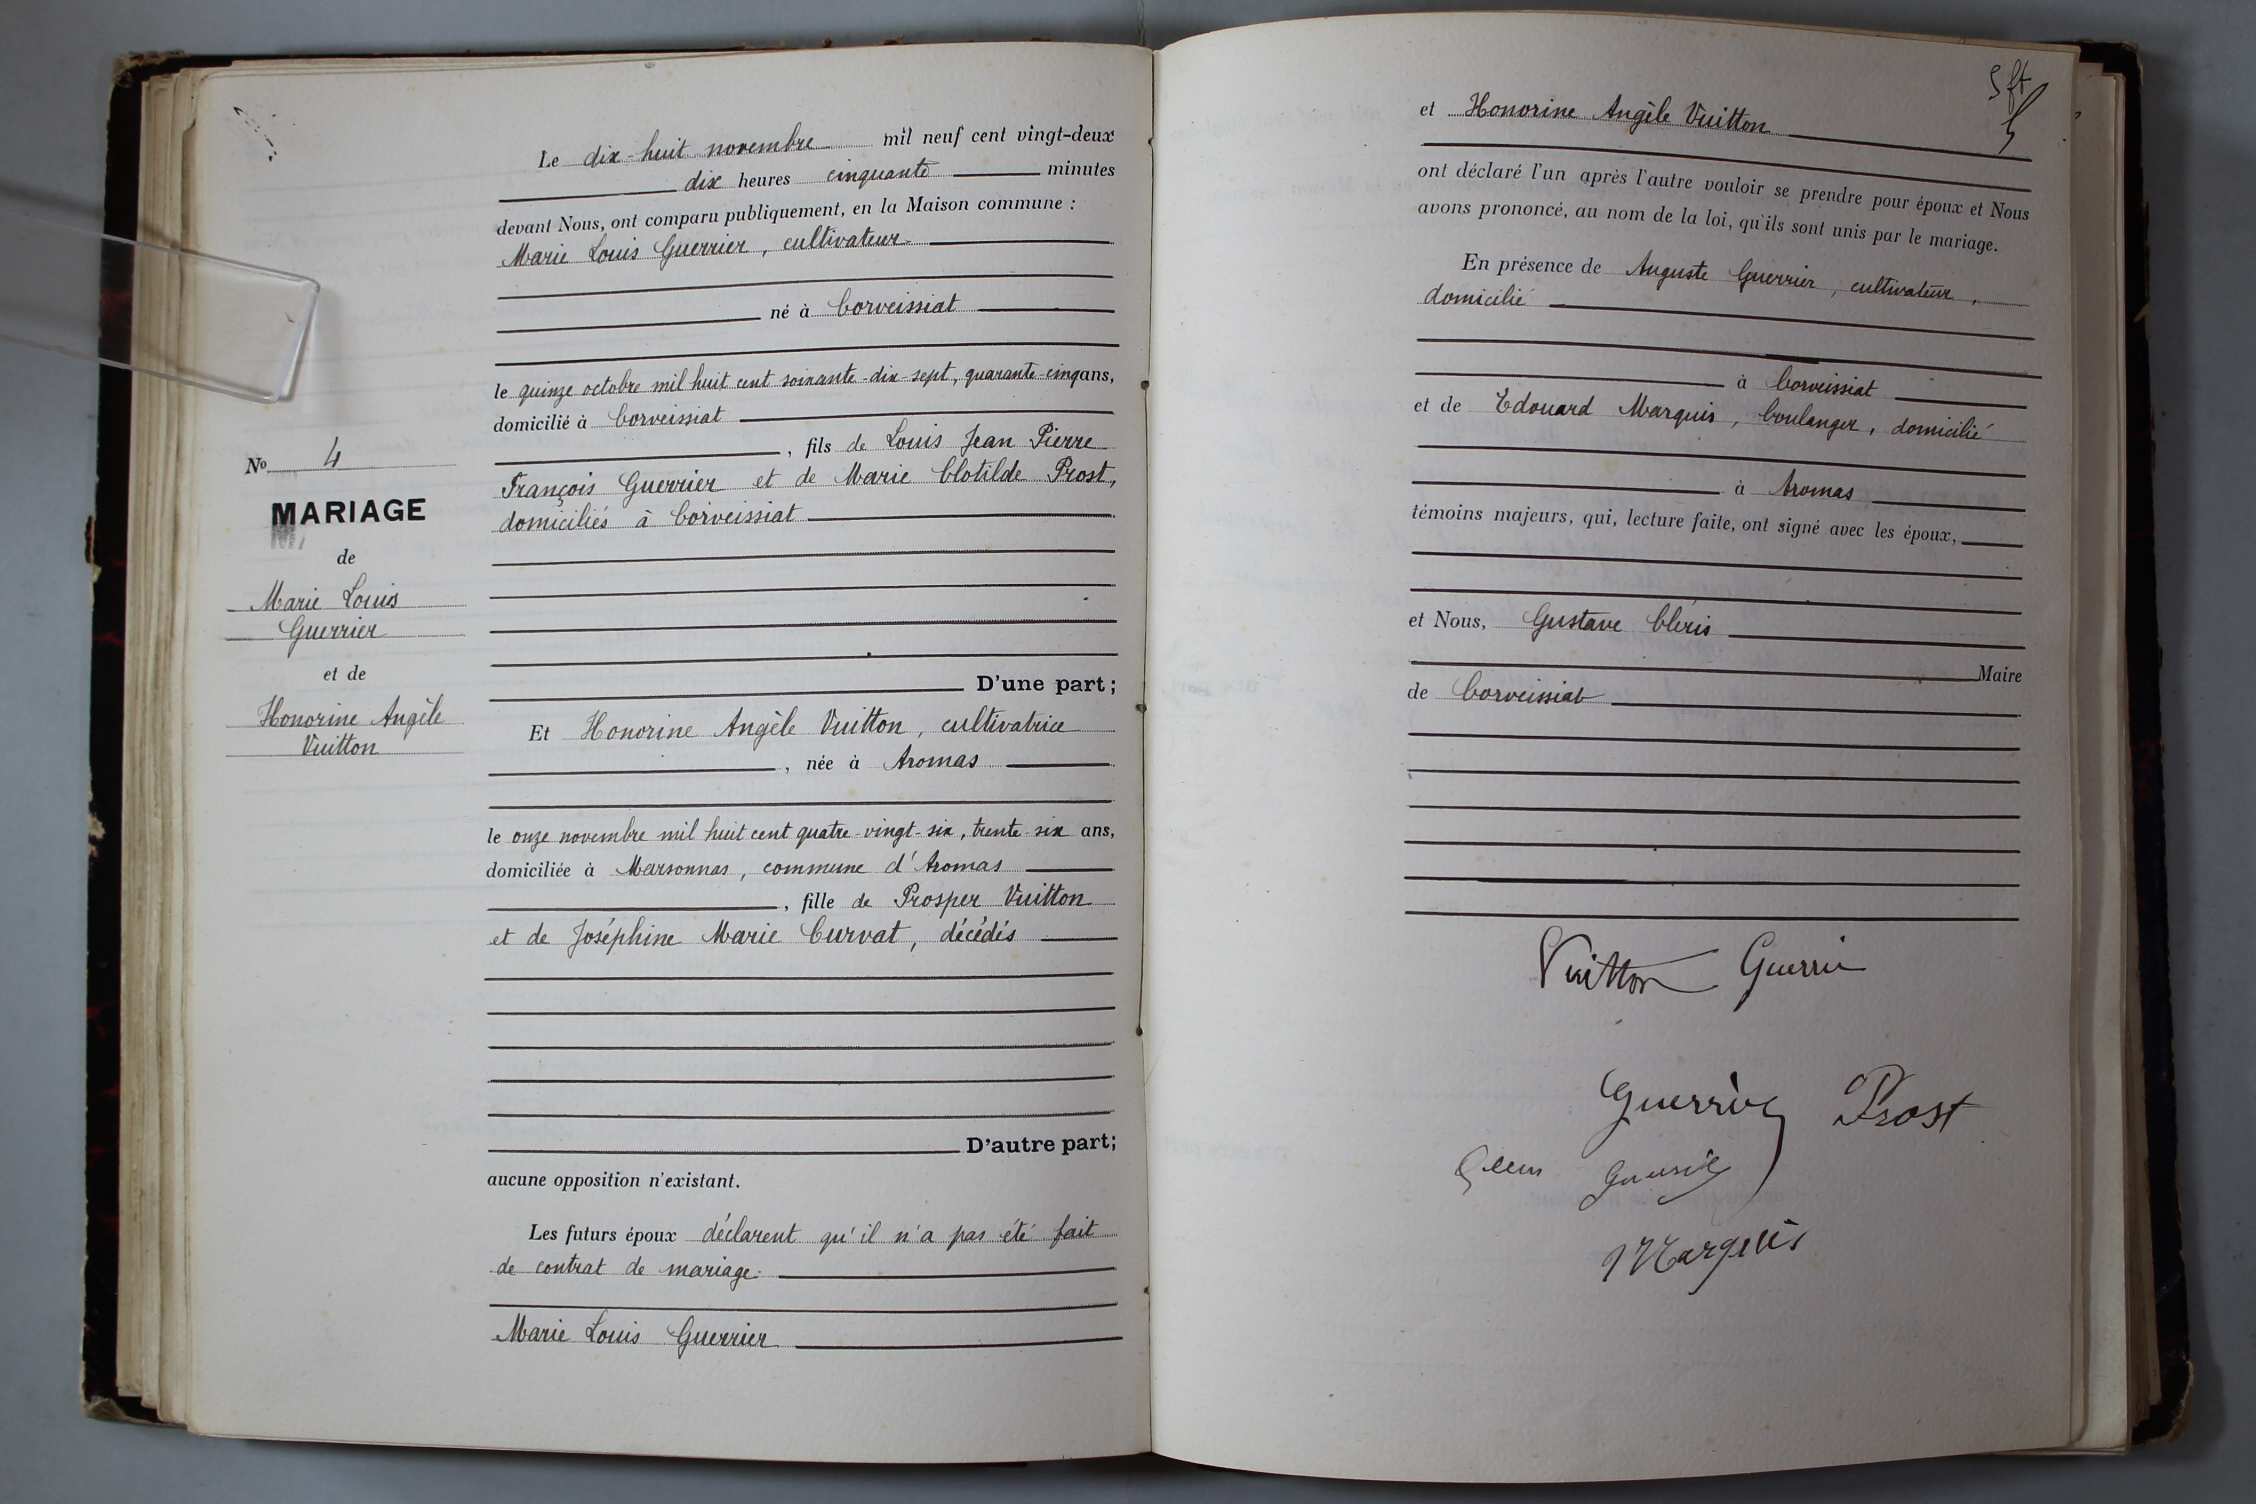 Le dix-huit novembre mil neuf cent vingt-deux
dix heures cinquante minutes
devant Nous, ont comparu publiquement, en la Maison commune :
Marie Louis Guerrier, cultivateur
né à Corveissiat
le quinze octobre mil huit cent soixante-dix-sept, quarante-cinq ans,
domicilié à Corveissiat
, fils de Louis Jean Pierre
François Guerrier et de Marie Clotilde Prost,
domiciliés à Corveissiat
D'une part ;
Et Honorine Angèle Vuitton, cultivatrice
, née à Aromas
le onze novembre mil huit cent quatre-vingt-six, trente-six ans,
domiciliée à Marsonnas, commune d'Aromas
, fille de Prosper Vuitton
et de Joséphine Marie Curvat, décédés
D'autre part ;
aucune opposition n'existant.
Les futurs époux déclarent qu'il n'a pas été fait
de contrat de mariage.
Marie Louis Guerrier
No 4
MARIAGE
de
Marie Louis
Guerrier
et de
Honorine Angèle
Vuitton
et Honorine Angèle Vuitton
ont déclaré l'un après l'autre vouloir se prendre pour époux et Nous
avons prononcé, au nom de la loi, qu'ils sont unis par le mariage.
En présence de Auguste Guerrier, cultivateur,
domicilié
à Corveissiat
et de Edouard Marquis, boulanger, domicilié
à Aromas
témoins majeurs, qui, lecture faite, ont signé avec les époux,
et Nous, Gustave Cléris
Maire
de Corveissiat
Vuitton Guerrier
Guerrier Prost
Guerrier
Marquis